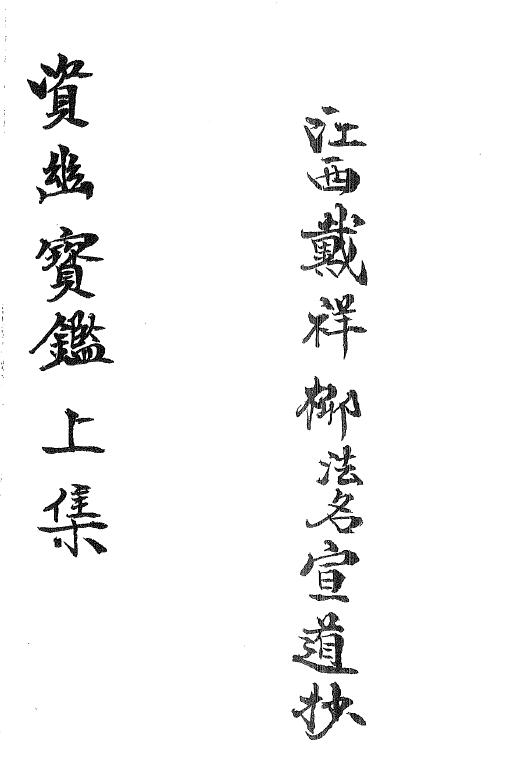 江西戴祥柳法名宣道抄
資幽寶鑑上集